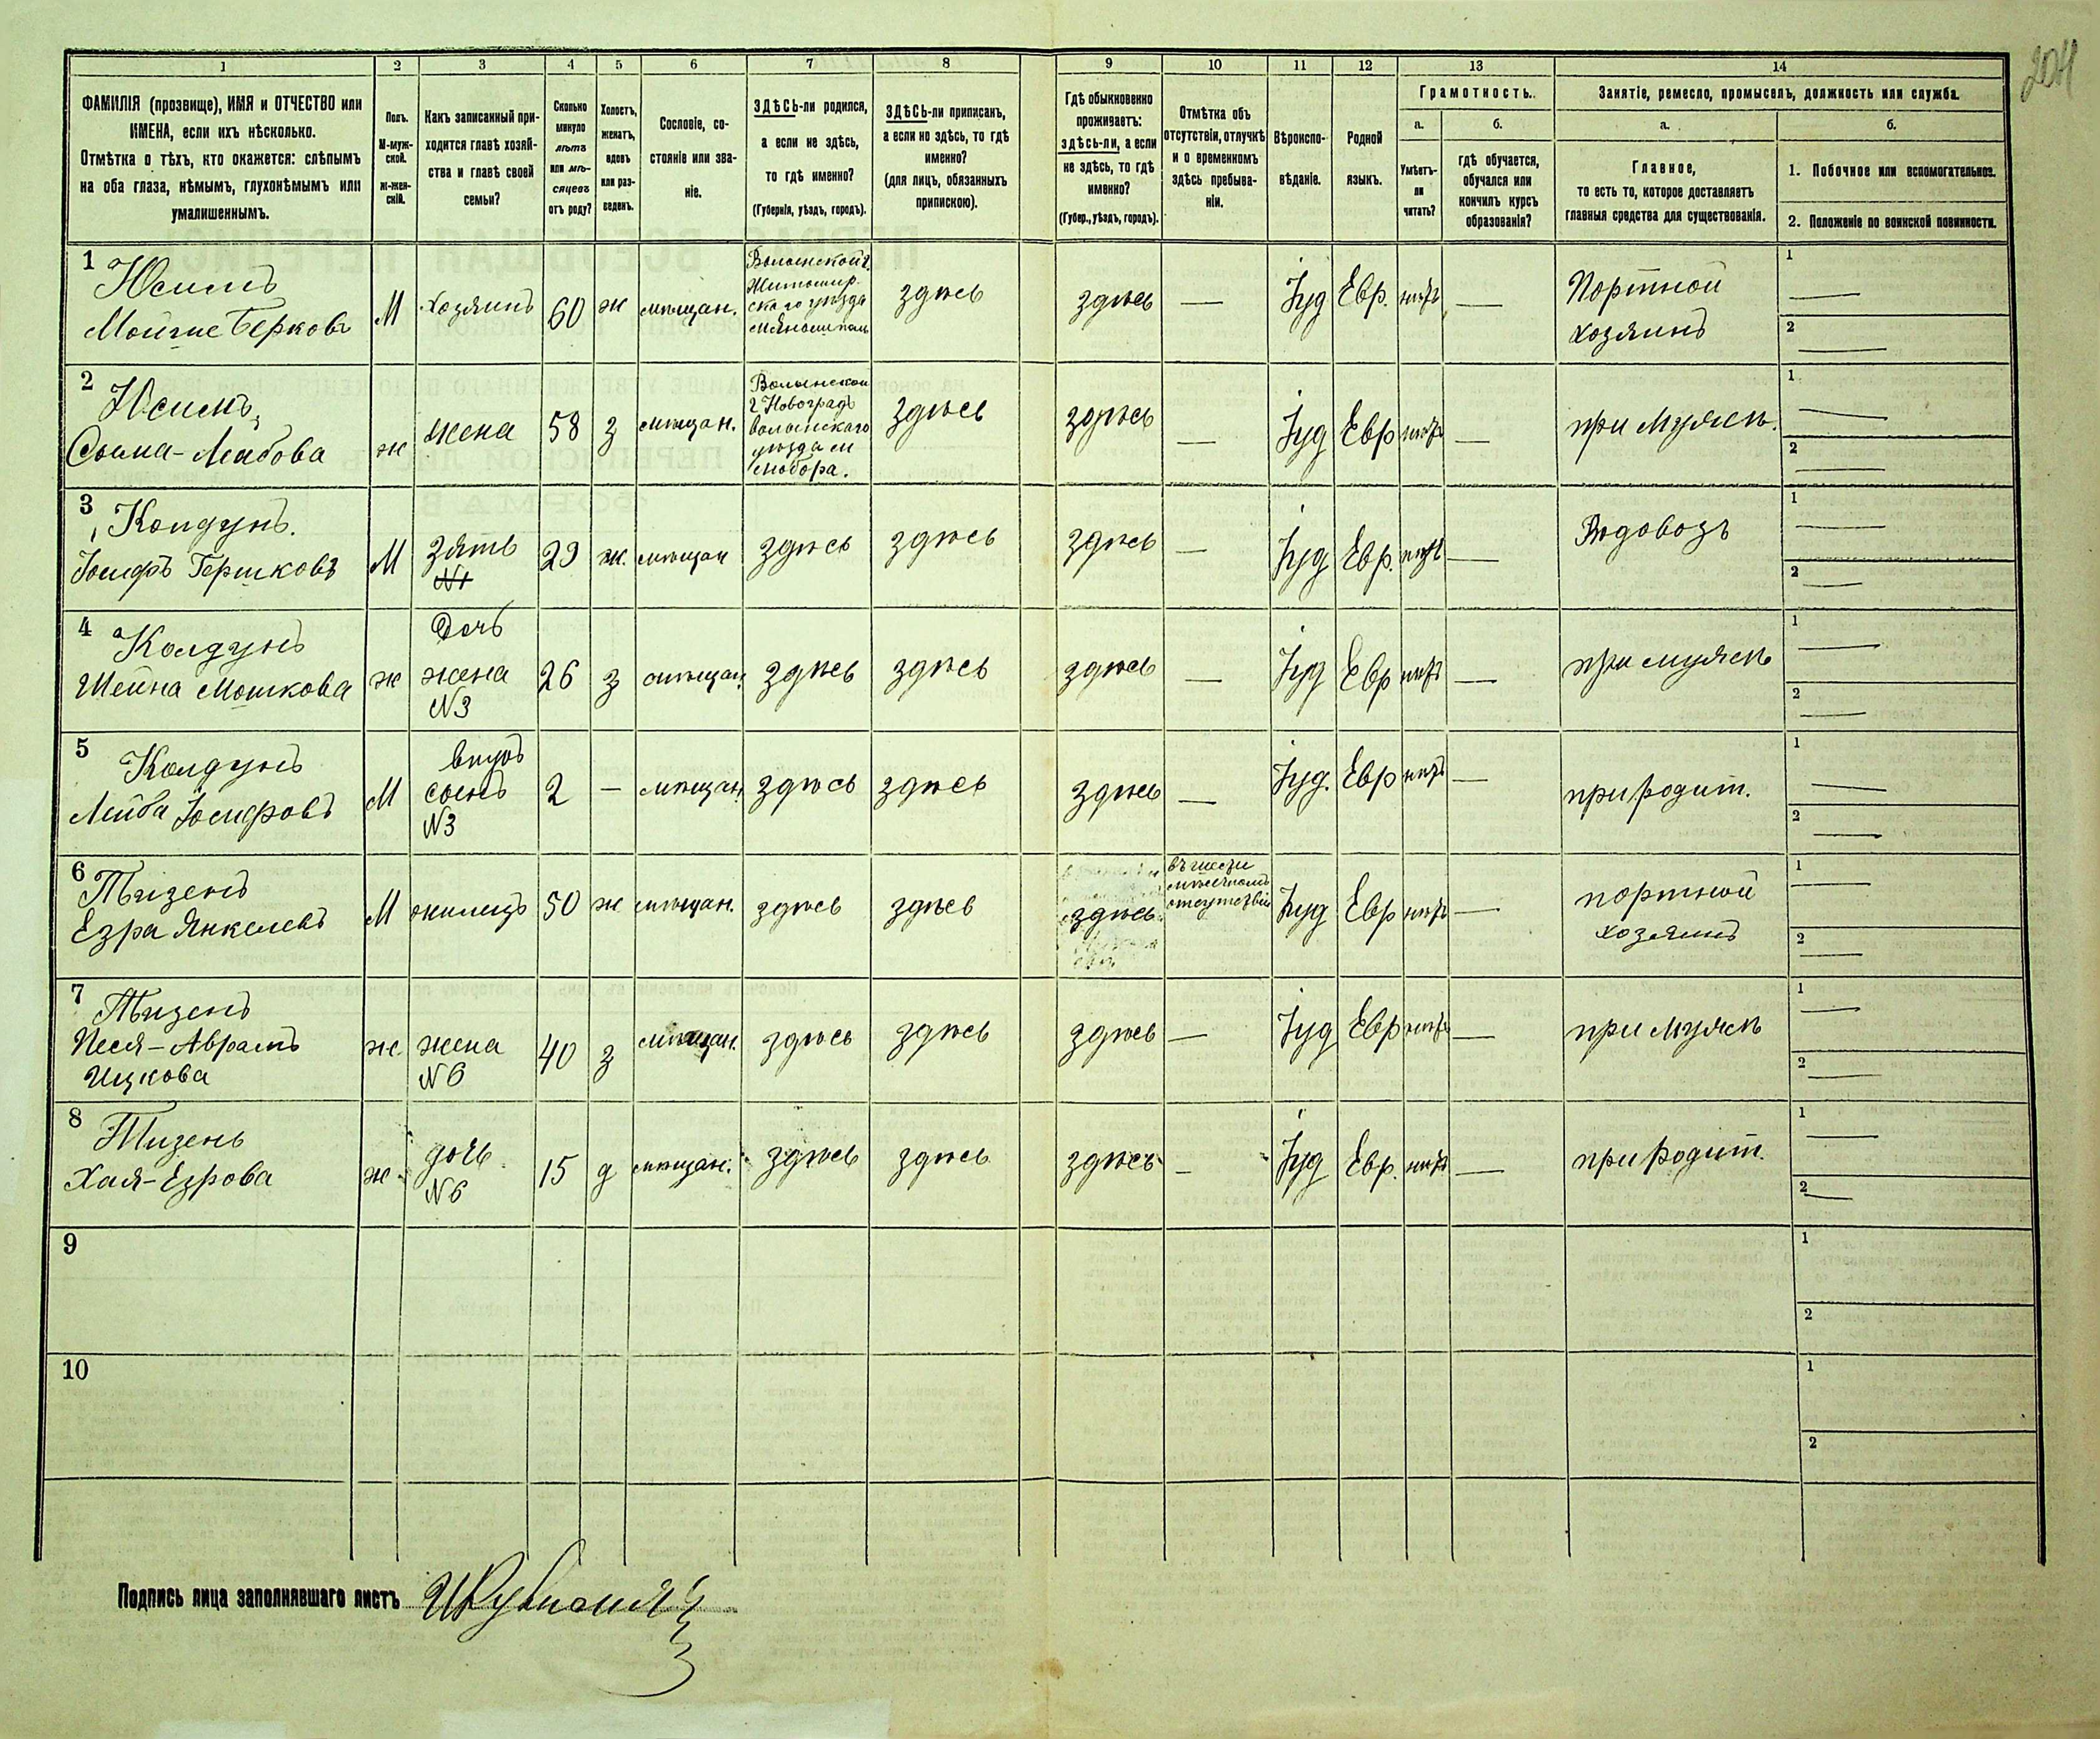 204
1 2 3 4 5 6 7 8 9 10 11 12 13 14
ФАМИЛІЯ (прозвище), ИМЯ и ОТЧЕСТВО или
ИМЕНА, если ихъ нѣсколько.
Отмѣтка о тѣхъ, кто окажется: слѣпымъ
на оба глаза, нѣмымъ, глухонѣмымъ или
умалишеннымъ.
Полъ.
М-муж-
ской.
ж-жен-
скій.
Какъ записанный при-
ходится главѣ хозяй-
ства и главѣ своей
семьи?
Сколько
минуло
лѣтъ
или мѣ-
сяцевъ
отъ роду?
Холостъ,
женатъ,
вдовъ
или раз-
веденъ.
Сословіе, со-
стояніе или зва-
ніе.
ЗДѢСЬ-ли родился,
а если не здѣсь,
то гдѣ именно?
(Губернія, уѣздъ, городъ).
ЗДѢСЬ-ли приписанъ,
а если не здѣсь, то гдѣ
именно?
(для лицъ, обязанныхъ
припискою).
Гдѣ обыкновенно
проживаетъ:
здѣсь-ли, а если
не здѣсь, то гдѣ
именно?
(Губер., уѣздъ, городъ).
Отмѣтка объ
отсутствіи, отлучкѣ
и о временномъ
здѣсь пребыва-
ніи.
Вѣроиспо-
вѣданіе.
Родной
языкъ.
Грамотность.
а.
Умѣетъ-
ли
читать?
б.
гдѣ обучается,
обучался или
кончилъ курсъ
образованія?
Занятіе, ремесло, промыселъ, должность или служба.
а.
Главное,
то есть то, которое доставляетъ
главныя средства для существованія.
б.
1. Побочное или вспомогательное.
2. Положеніе по воинской повинности.
1
Мойше Берковъ
М
хозяинъ
60
ж
мѣщан.
Волынской г.
Житомир-
скаго уѣзда
здѣсь
здѣсь
—
Іуд
Евр.
нѣтъ
—
Портной
хозяинъ
1 —
2 —
2
ж
жена
58
з
мѣщан.
Волынской
г Новоградъ
волынскаго
уѣзда м
здѣсь
здѣсь
—
Іуд
Евр
нѣтъ
—
при мужѣ.
1 —
2 —
3
Колдунъ.
Іосифъ Гершковъ
М
зять
N1
29
ж.
мѣщан
здѣсь
здѣсь
здѣсь
—
Іуд
Евр.
нѣтъ
—
Водовозъ
1 —
2 —
4
Колдунъ
Шейна Мошкова
ж
Дочь
жена
N3
26
з
мѣщан.
здѣсь
здѣсь
здѣсь
—
Іуд
Евр
нѣтъ
—
при мужѣ
1 —
2 —
5
Колдунъ
Лейба Іосифовъ
М
внукъ
сынъ
N3
2
—
мѣщан.
здѣсь
здѣсь
здѣсь
—
Іуд.
Евр
нѣтъ
—
при родит.
1 —
2 —
6
Тизенъ
Езра Янкелевъ
М
жилецъ
50
ж
мѣщан.
здѣсь
здѣсь
здѣсь
отсутствіи
Іуд
Евр
нѣтъ
—
портной
хозяинъ
1 —
2 —
7
Тизенъ
Песя-Аврамъ
Ицкова
ж
жена
N6
40
з
мѣщан.
здѣсь
здѣсь
здѣсь
—
Іуд
Евр
нѣтъ
—
при мужѣ
1 —
2 —
8
Тизенъ
Хая-Езрова
ж
дочь
N6
15
д
мѣщан.
здѣсь
здѣсь
здѣсь
—
Іуд
Евр.
нѣтъ
—
при родит.
1 —
2 —
9
1
2
10
1
2
Подпись лица заполнявшаго листъ